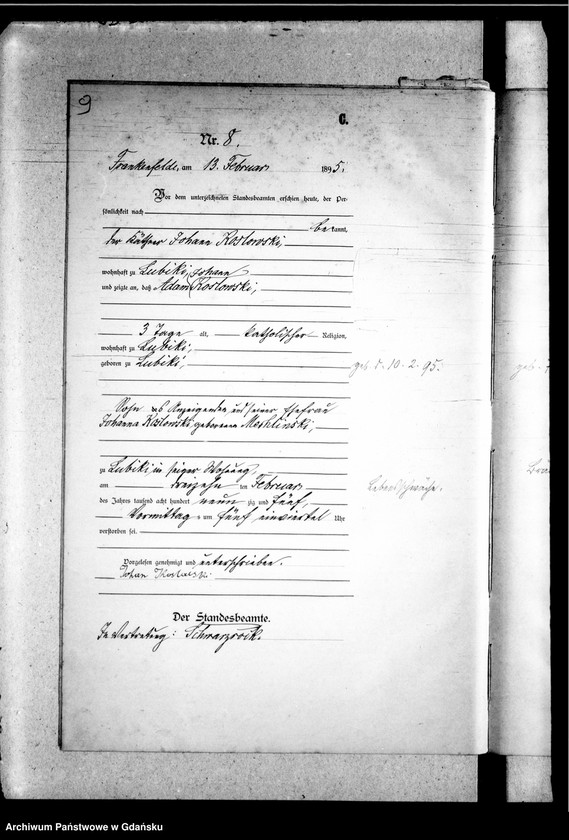 9
C.
Nr. 8.
Frankenfelde, am 13. Februar 1895.
Vor dem unterzeichneten Standesbeamten erschien heute, der Per-
sönlichkeit nach
bekannt,
der Käthner Johann Koslowski,
wohnhaft zu Lubiki, Johann
und zeigte an, daß Adam Koslowski,
3 Tage alt, katholischer Religion,
wohnhaft zu Lubiki,
geboren zu Lubiki, geb. d. 10-2-95.
Sohn des Anzeigenden und seiner Ehefrau
Johanna Koslowski geborenen
zu Lubiki in seiner Wohnung,
am dreizehn ten Februar
des Jahres tausend acht hundert neun zig und fünf, Lebensschwäche.
Vormittag s um fünf einviertel Uhr
verstorben sei.
Vorgelesen, genehmigt und unterschrieben.
Johan
Der Standesbeamte.
In Vertretung: Schwarzrock.
Archiwum Państwowe w Gdańsku